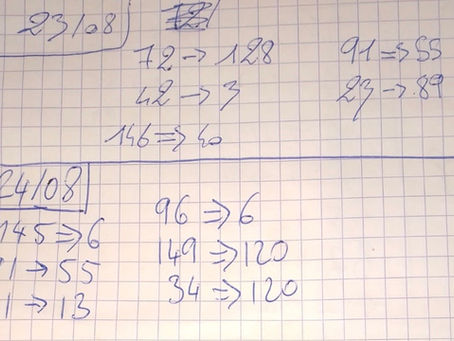 23/08
72 → 128
91 ⇒ 55
42 → 3
23 → 89
146 ⇒ 40
24/08
96 ⇒ 6
145 ⇒ 6
149 ⇒ 120
1 → 55
34 ⇒ 120
1 → 13